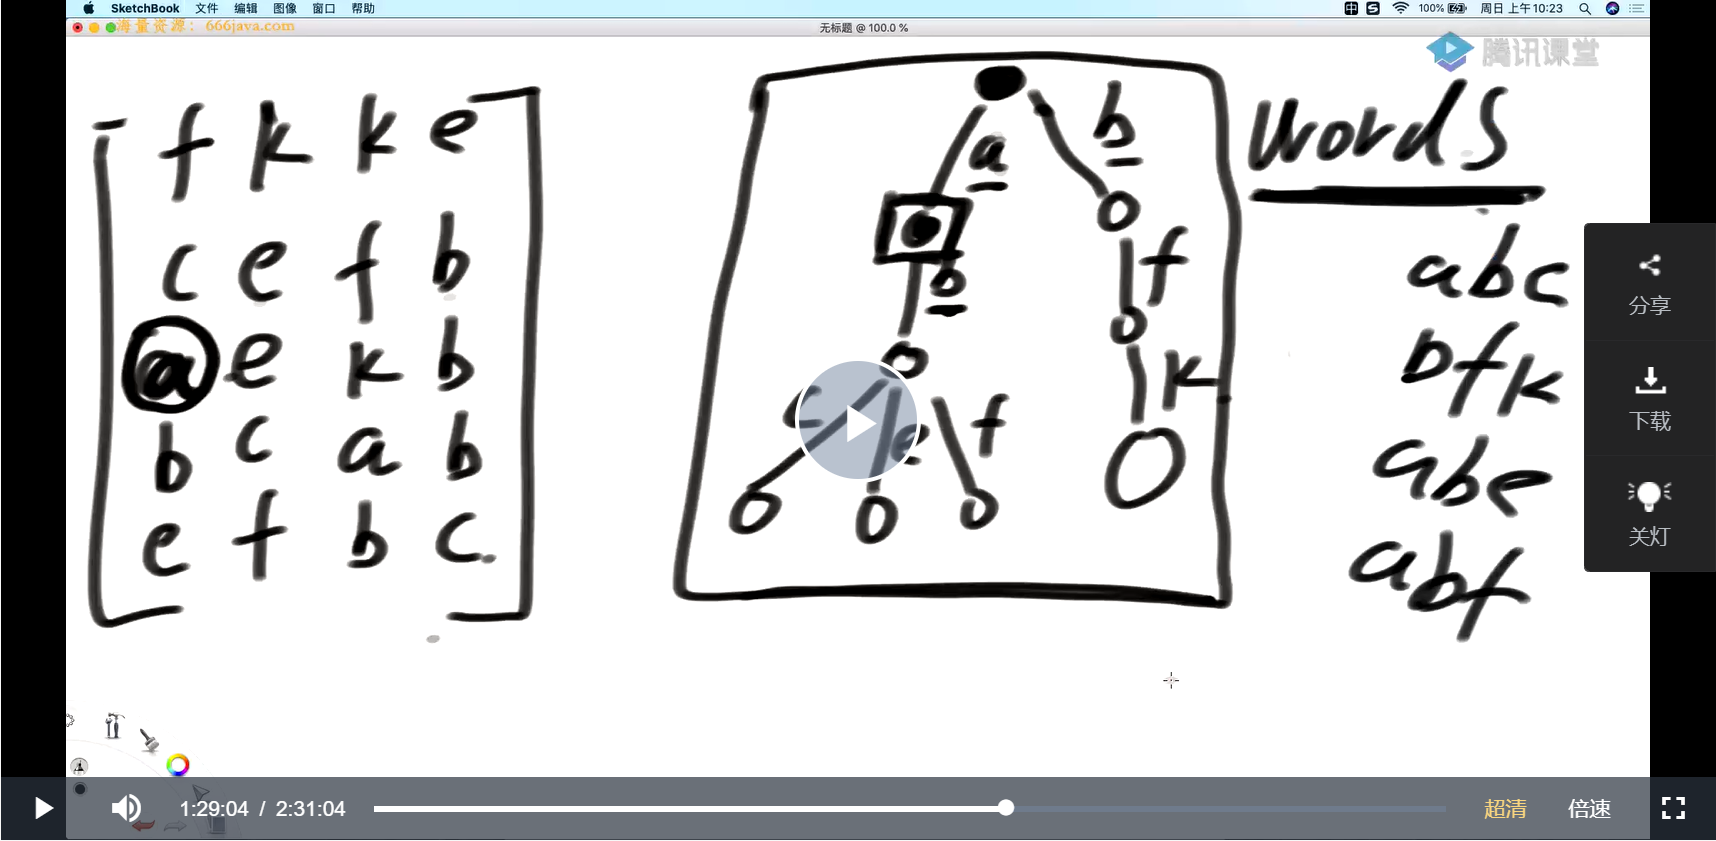 SketchBook 文件 编辑 图像 窗口 帮助 100% 周日 上午10:23
海量资源：666java.com
无标题 @ 100.0 %
腾讯课堂
f k k e
c e f b
a e k b
b c a b
e f b c
a b
b f
c e f k
words
abc
bfk
abe
abf
分享
下载
关灯
1:29:04 / 2:31:04
超清 倍速